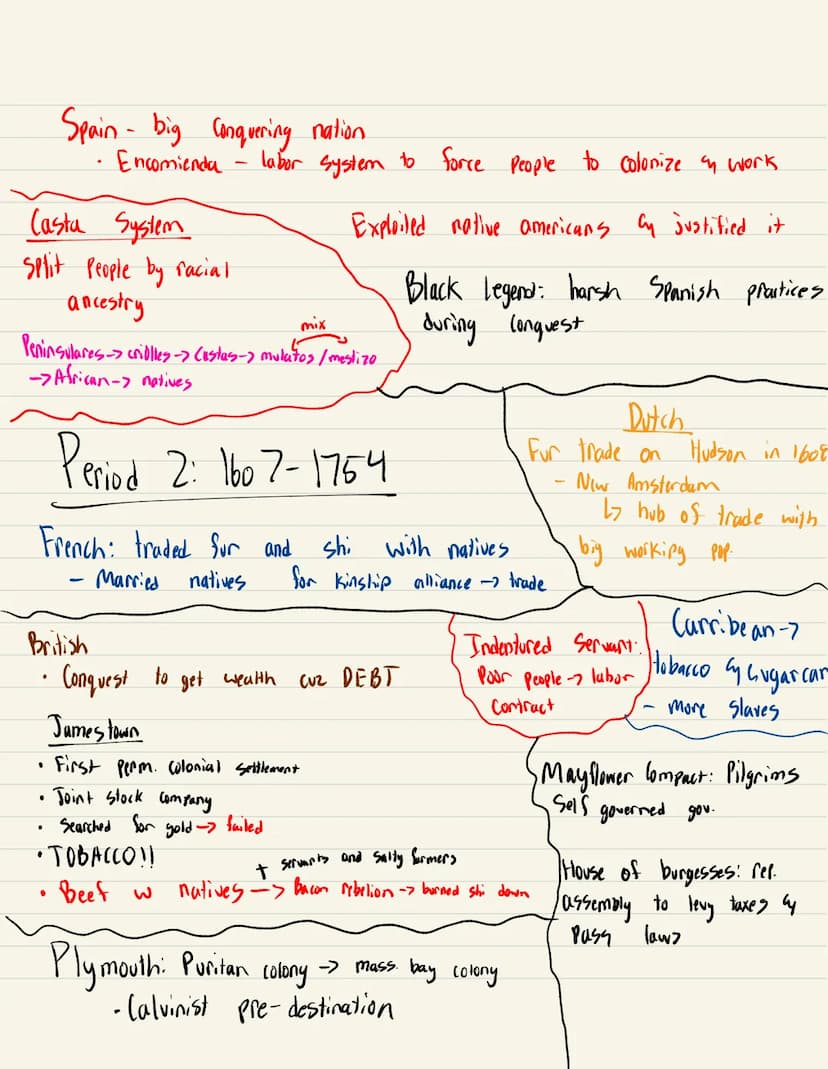 Spain - big Conquering nation
• Encomienda - labor system to force people to colonize & work
Casta System
split people by racial
ancestry
mix
Peninsulares -> criolles -> Castas -> mulatos / mestizo
-> African -> natives
Exploiled native americans & justified it
Black legend: harsh Spanish practices
during conquest
Period 2: 1607-1754
French: traded fur and shi with natives
- Married natives for kinship alliance -> trade
Dutch
Fur trade on Hudson in 1608
- New Amsterdam
↳ hub of trade with
big working pop.
British
• Conquest to get wealth cuz DEBT
Jamestown
• First perm. colonial settlement
• Joint stock company
• Searched for gold -> failed
• TOBACCO!!
+ servants and salty farmers
• Beef w natives -> Bacon rebelion -> burned shi down
Indentured Servant:
Poor people -> labor
contract
Carribean ->
tobacco & sugarcan
- more slaves
Mayflower Compact: Pilgrims
Self governed gov.
House of burgesses: rep.
assembly to levy taxes &
pass laws
Plymouth: Puritan colony -> mass. bay colony
- Calvinist pre-destination